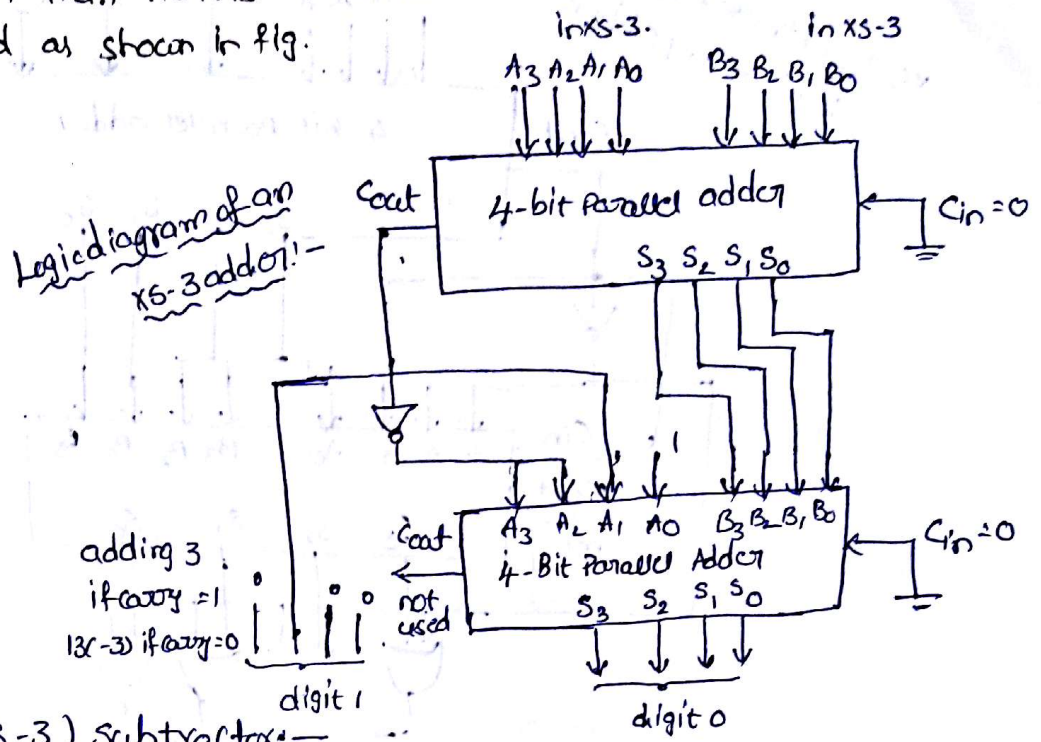 d as shocon in fig.
inxs-3.
in xs-3
A3 A2 A1 A0
B3 B2 B1 B0
Logic diagram of an
xs-3 adder:-
Cout
4-bit parallel adder
Cin=0
S3 S2 S1 S0
1
A3 A2 A1 A0 B3 B2 B1 B0
Cout
not
used
4-Bit Parallel Adder
Cin=0
S3 S2 S1 S0
adding 3
if carry =1
13(-3) if carry=0
0
0
0
digit 1
digit 0
-3) subtractor:-